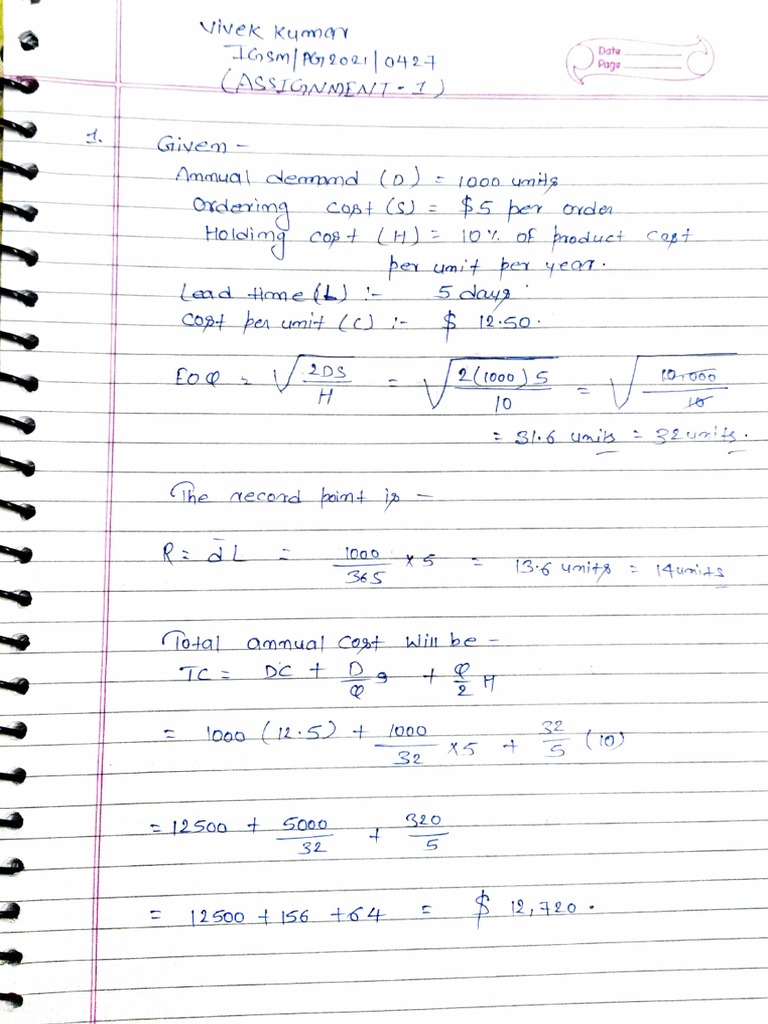 Vivek Kumar
IGSM/PG2021/0427
(ASSIGNMENT - 1)
Date
Page
1. Given -
Annual demand (D) = 1000 units
Ordering cost (S) = $5 per order
Holding cost (H) = 10% of product cost
per unit per year.
Lead time (L) :- 5 days
Cost per unit (C) :- $ 12.50.
EOQ = √(2DS/H) = √(2(1000)5/10) = √(10,000/10)
= 31.6 units = 32 units.
The record point is -
R = d̄L = 1000/365 × 5 = 13.6 units = 14 units
Total annual cost will be -
TC = DC + D/Q s + Q/2 H
= 1000 (12.5) + 1000/32 × 5 + 32/5 (10)
= 12500 + 5000/32 + 320/5
= 12500 + 156 + 64 = $ 12,720.